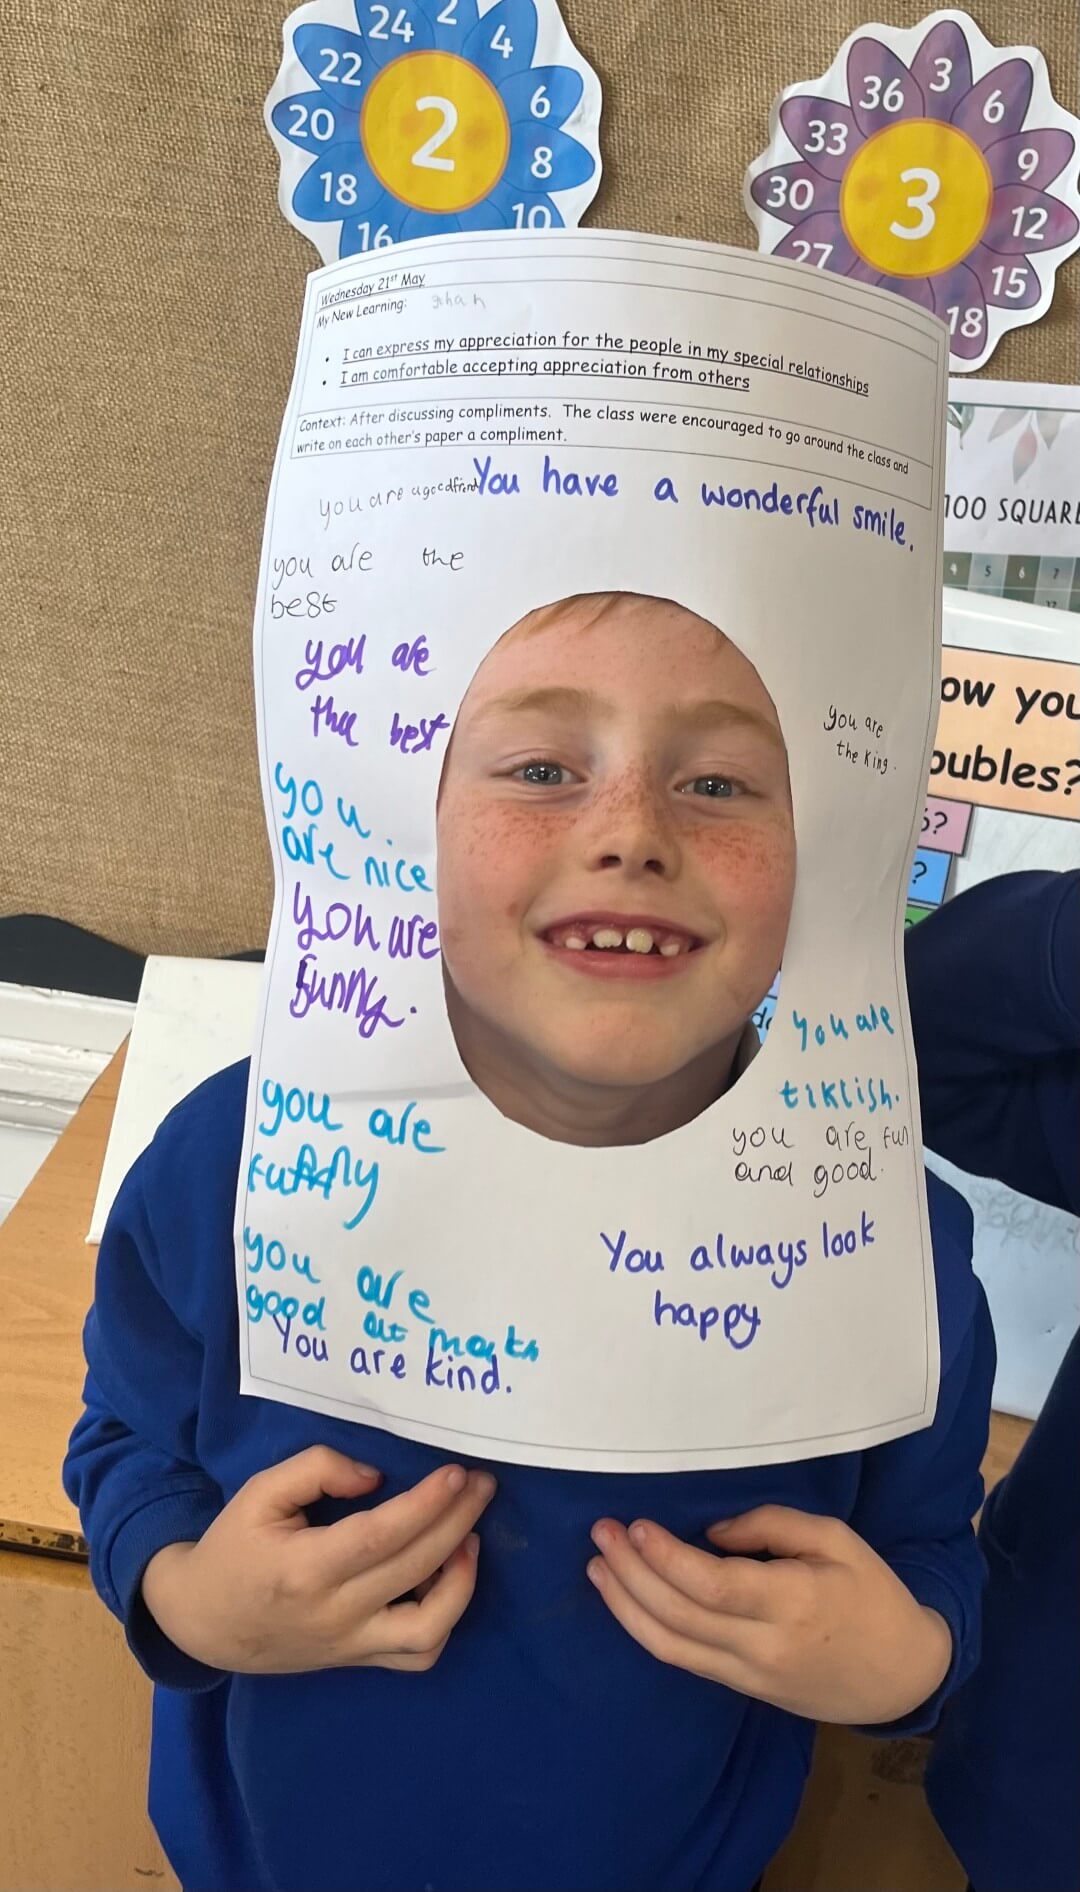 24 2 4
22 6
20 2 8
18 10
16
36 3 6
33 9
30 3 12
27 15
18
Wednesday 21st May
My New Learning:
• I can express my appreciation for the people in my special relationships
• I am comfortable accepting appreciation from others
Context: After discussing compliments. The class were encouraged to go around the class and
write on each other's paper a compliment.
you are a good friend
You have a wonderful smile.
you are the
best
you are
the best
you
are nice
you are
funny.
you are
funny
you are
good at math
You are kind.
you are
the king.
you are
tiklish.
you are fun
and good.
You always look
happy
100 SQUARE
4 5 6 7
ow you
oubles?
?
?